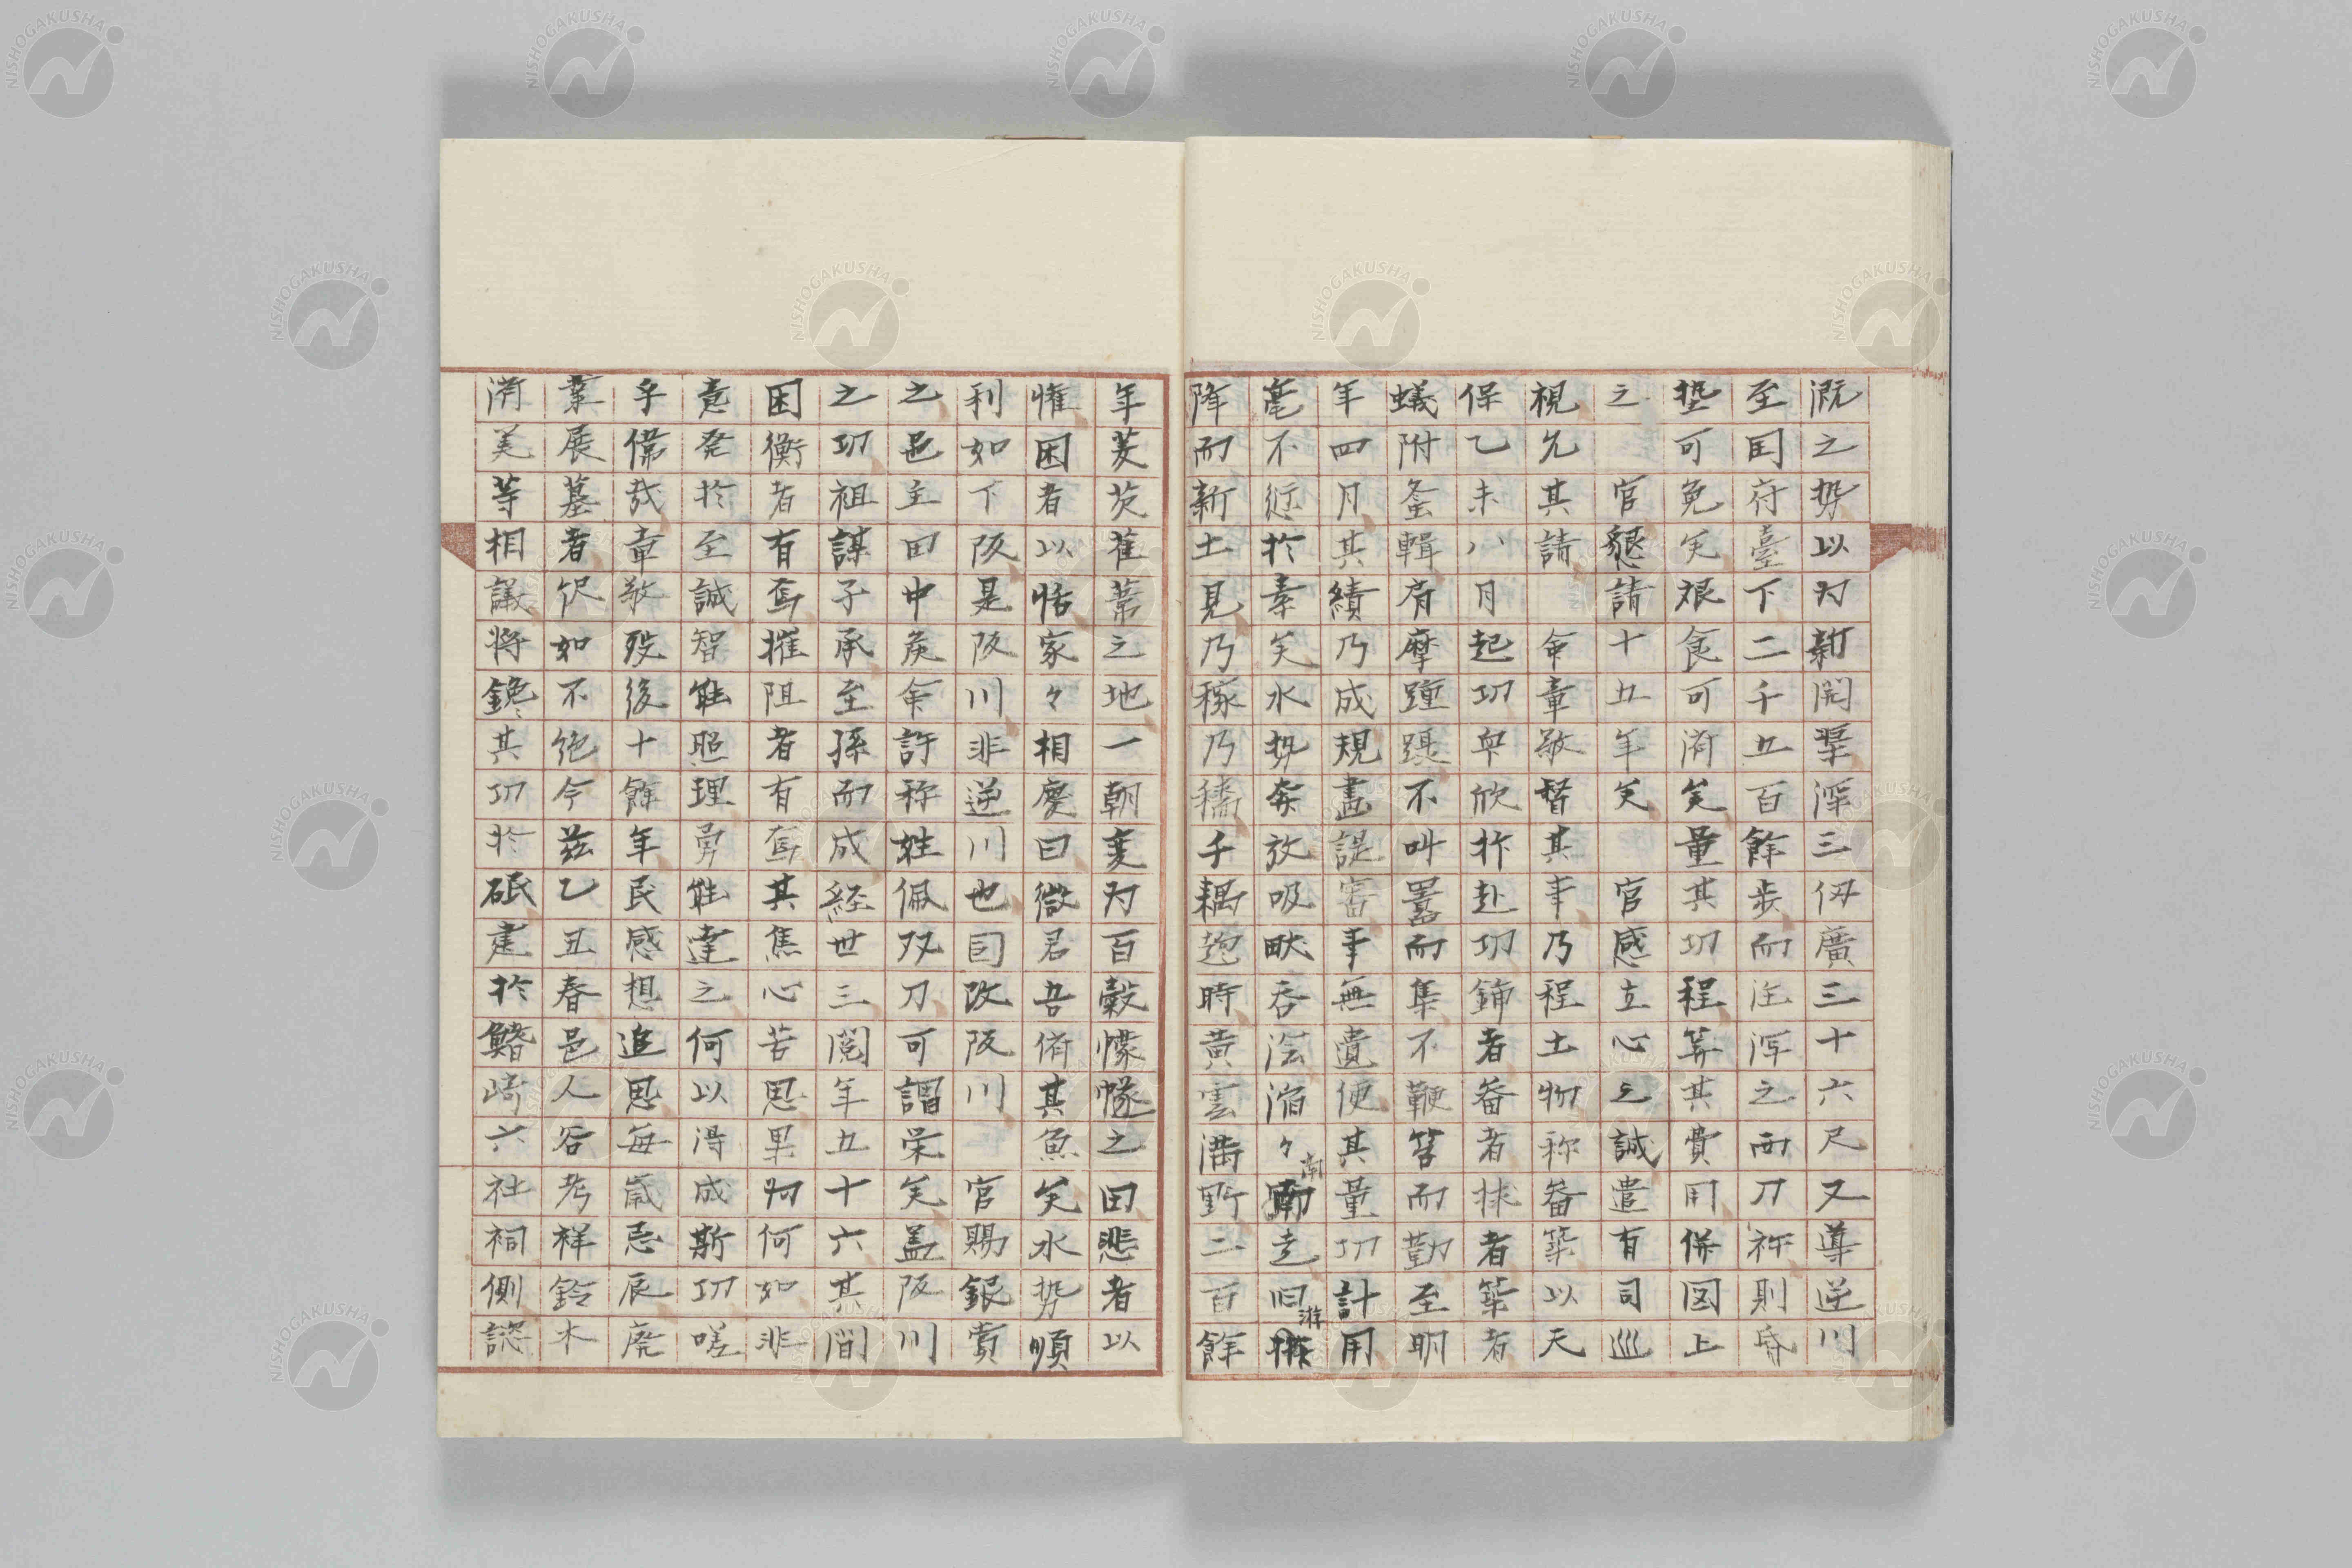 漑之勢以为新開塹深三仭廣三十六尺又導逆川
至国府臺下二千五百餘歩而注渾之西刀祢則昏
墊可免矣粮食可済矣量其功程筭其費用併図上
之 官懇請十五年矣 官感立心之誠遣有司巡
視允其請 命章敬督其事乃程土物称畚築以天
保乙未八月起功卑欣抃赴功鍤者畚者捄者築者
蟻附蚉輯肩摩踵躡不叫嚣而集不鞭笞而勤至明
年四月其績乃成規畫諟審事無遺便其量功計用
毫不愆於素矣水勢奔放吸畎呑浍滔々南走旧游
降而新土見乃稼乃穡千耦趍時黄雲満野二百餘
年芰茨萑葦之地一朝変为百穀懞幪之田悲者以
懽困者以恬家々相慶曰微君吾儕其魚矣水勢順
利如下阪是阪川非逆川也因改阪川 官賜銀賞
之邑主田中矦命許称姓佩双刀可謂栄矣盖阪川
之功祖謀子承至孫而成経世三閲年五十六其間
困衡者有焉摧阻者有焉其焦心苦思果为何如非
意発於至誠智能照理勇能達之何以淂成斯功嗟
乎偉哉章敬歿後十餘年民感想追思每歳忌辰廃
業展墓者仍如不絶今茲乙丑春邑人谷考祥鈴木
済美等相議将鑱其功於砥建於鰭崎六社祠側諮